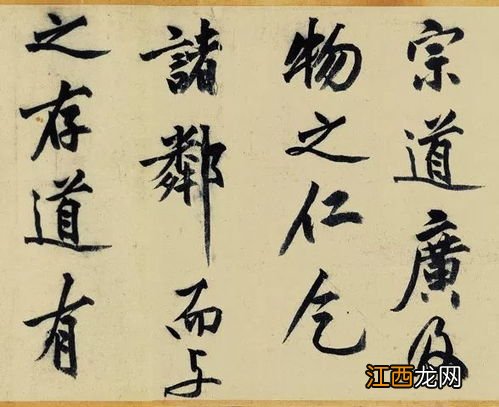 宗道廣及
物之仁乞
諸鄰而与
之存道有
江西龙网